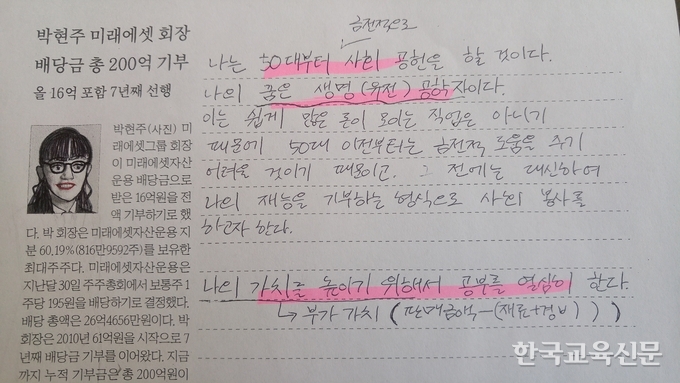 박현주 미래에셋 회장
배당금 총 200억 기부
올 16억 포함 7년째 선행
박현주(사진) 미
래에셋그룹 회장
이 미래에셋자산
운용 배당금으로
받은 16억원을 전
액 기부하기로 했
다. 박 회장은 미래에셋자산운용 지
분 60.19%(816만9592주)를 보유한
최대주주다. 미래에셋자산운용은
지난달 30일 주주총회에서 보통주 1
주당 195원을 배당하기로 결정했다.
배당 총액은 26억4656만원이다. 박
회장은 2010년 61억원을 시작으로 7
년째 배당금 기부를 이어왔다. 지금
까지 누적 기부금은 총 200억원이
금전적으로
나는 50대부터 사회 공헌을 할 것이다.
나의 꿈은 생명(유전) 공학자이다.
이는 쉽게 많은 돈이 모이는 직업은 아니기
때문에 50대 이전부터는 금전적 도움을 주기
어려울 것이기 때문이고. 그 전에는 대신하여
나의 재능을 기부하는 형식으로 사회 봉사를
하고자 한다.
나의 가치를 높이기 위해서 공부를 열심히 한다.
↳ 부가가치 (판매금액-(재료+경비))
한국교육신문